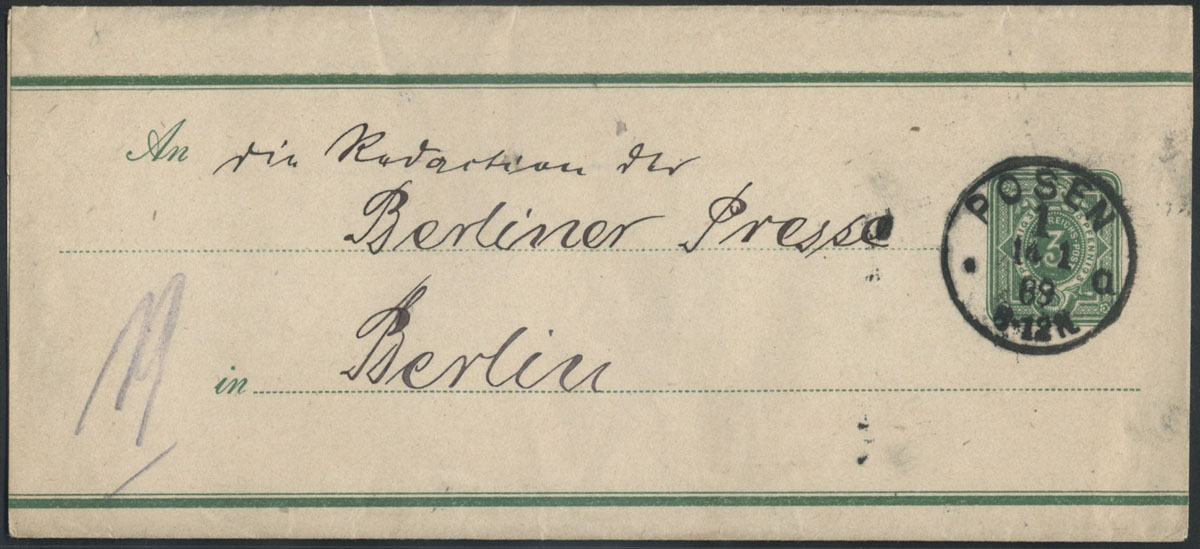 An die Redaction der
Berliner Presse
in Berlin
POSEN
1
14 1
89
8-12 N
a
3